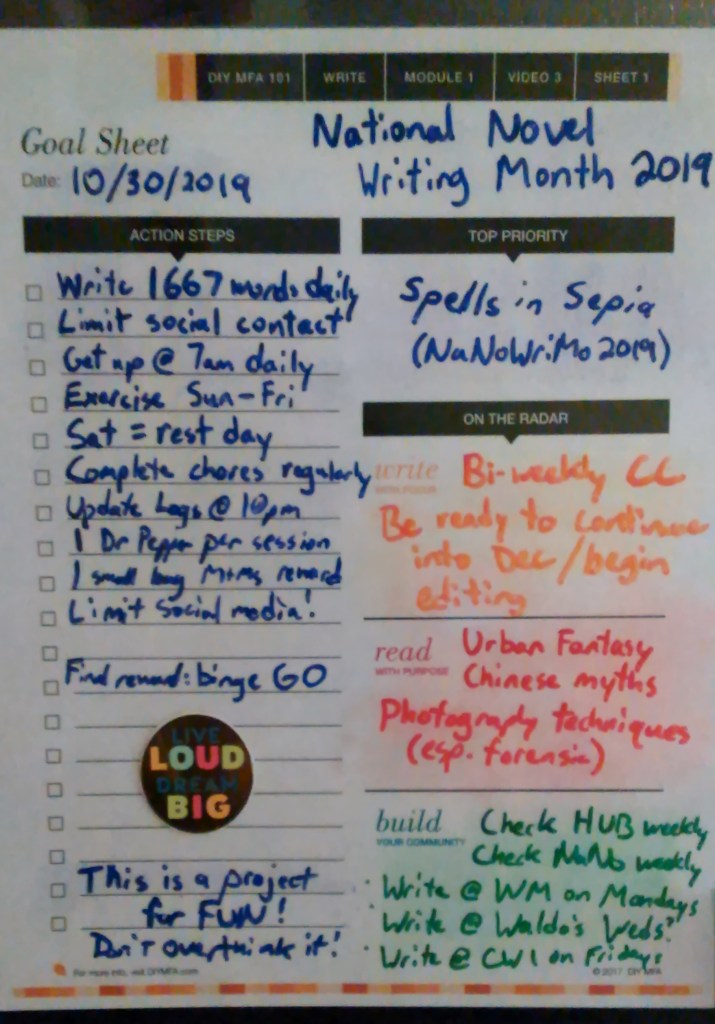 DIY MFA 101 WRITE MODULE 1 VIDEO 3 SHEET 1
Goal Sheet
National Novel
Writing Month 2019
Date: 10/30/2019
ACTION STEPS
Write 1667 words daily
Limit social contact
Get up @ 7am daily
Exercise Sun-Fri
Sat = rest day
Complete chores regularly
Update Logs @ 10pm
1 Dr Pepper per session
1 small bag M+Ms reward
Limit social media!
Final reward: binge GO
LIVE
LOUD
DREAM
BIG
This is a project
for FUN!
Don't overthink it!
For more info, visit DIYMFA.com
TOP PRIORITY
Spells in Sepia
(NaNoWriMo 2019)
ON THE RADAR
write Bi-weekly CC
WITH FOCUS
Be ready to continue
into Dec/begin
editing
read Urban Fantasy
WITH PURPOSE Chinese myths
Photography techniques
(esp. forensic)
build Check HUB weekly
YOUR COMMUNITY Check NaNo weekly
Write @ WM on Mondays
Write @ Waldo's Weds?
Write @ CWI on Fridays
© 2017 DIY MFA